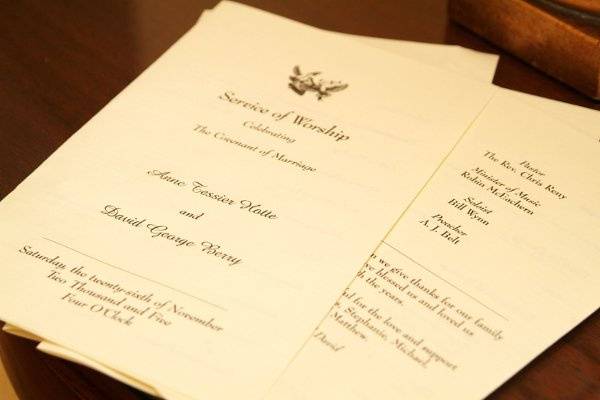 Service of Worship
Celebrating
The Covenant of Marriage
Anne Tessier Hatte
and
David George Berry
Saturday, the twenty-sixth of November
Two Thousand and Five
Four O'Clock
Pastor
The Rev. Chris Keny
Minister of Music
Robin McEachern
Soloist
Bill Wynn
Preacher
A. J. Belt
we give thanks for our family
blessed us and loved us
the years.
for the love and support
Stephanie, Michael,
Matthew.
David